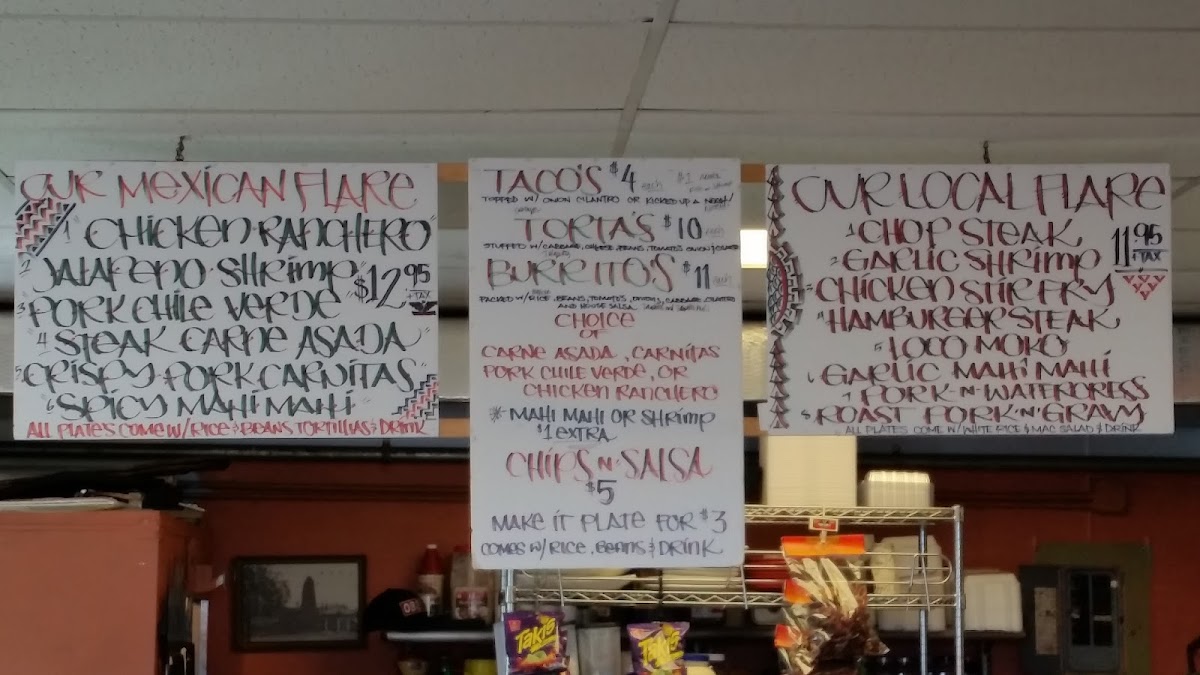 OUR MEXICAN FLARE
1 CHICKEN RANCHERO
2 JALAPENO SHRIMP
$12.95 +TAX
3 PORK CHILE VERDE
4 STEAK CARNE ASADA
5 CRISPY PORK CARNITAS
6 SPICY MAHI MAHI
ALL PLATES COME W/RICE & BEANS TORTILLAS & DRINK
TACO'S $4 each $1
TOPPED W/ ONION CILANTRO OR KICKED UP A NOTCH
TORTA'S $10 each
STUFFED W/ CABBAGE, CHEESE, BEANS, TOMATO'S, ONION,
BURRITO'S $11 each
PACKED W/ RICE, BEANS, TOMATO'S, ONIONS, CABBAGE, CILANTRO
AND HOUSE SALSA
CHOICE
OF
CARNE ASADA, CARNITAS
PORK CHILE VERDE, OR
CHICKEN RANCHERO
* MAHI MAHI OR SHRIMP
$1 EXTRA
CHIPS N' SALSA
$5
MAKE IT PLATE FOR $3
COMES W/RICE, BEANS & DRINK
OUR LOCAL FLARE
1 CHOP STEAK
11.95 +TAX
2 GARLIC SHRIMP
3 CHICKEN STIR FRY
4 HAMBURGER STEAK
5 LOCO MOKO
6 GARLIC MAHI MAHI
7 PORK-N-WATERCRESS
8 ROAST PORK 'N' GRAVY
ALL PLATES COME W/WHITE RICE & MAC SALAD & DRINK
Takis
Takis